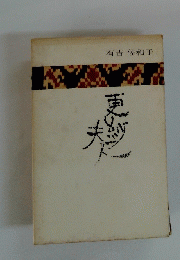 有吉佐和子
更紗
夫人